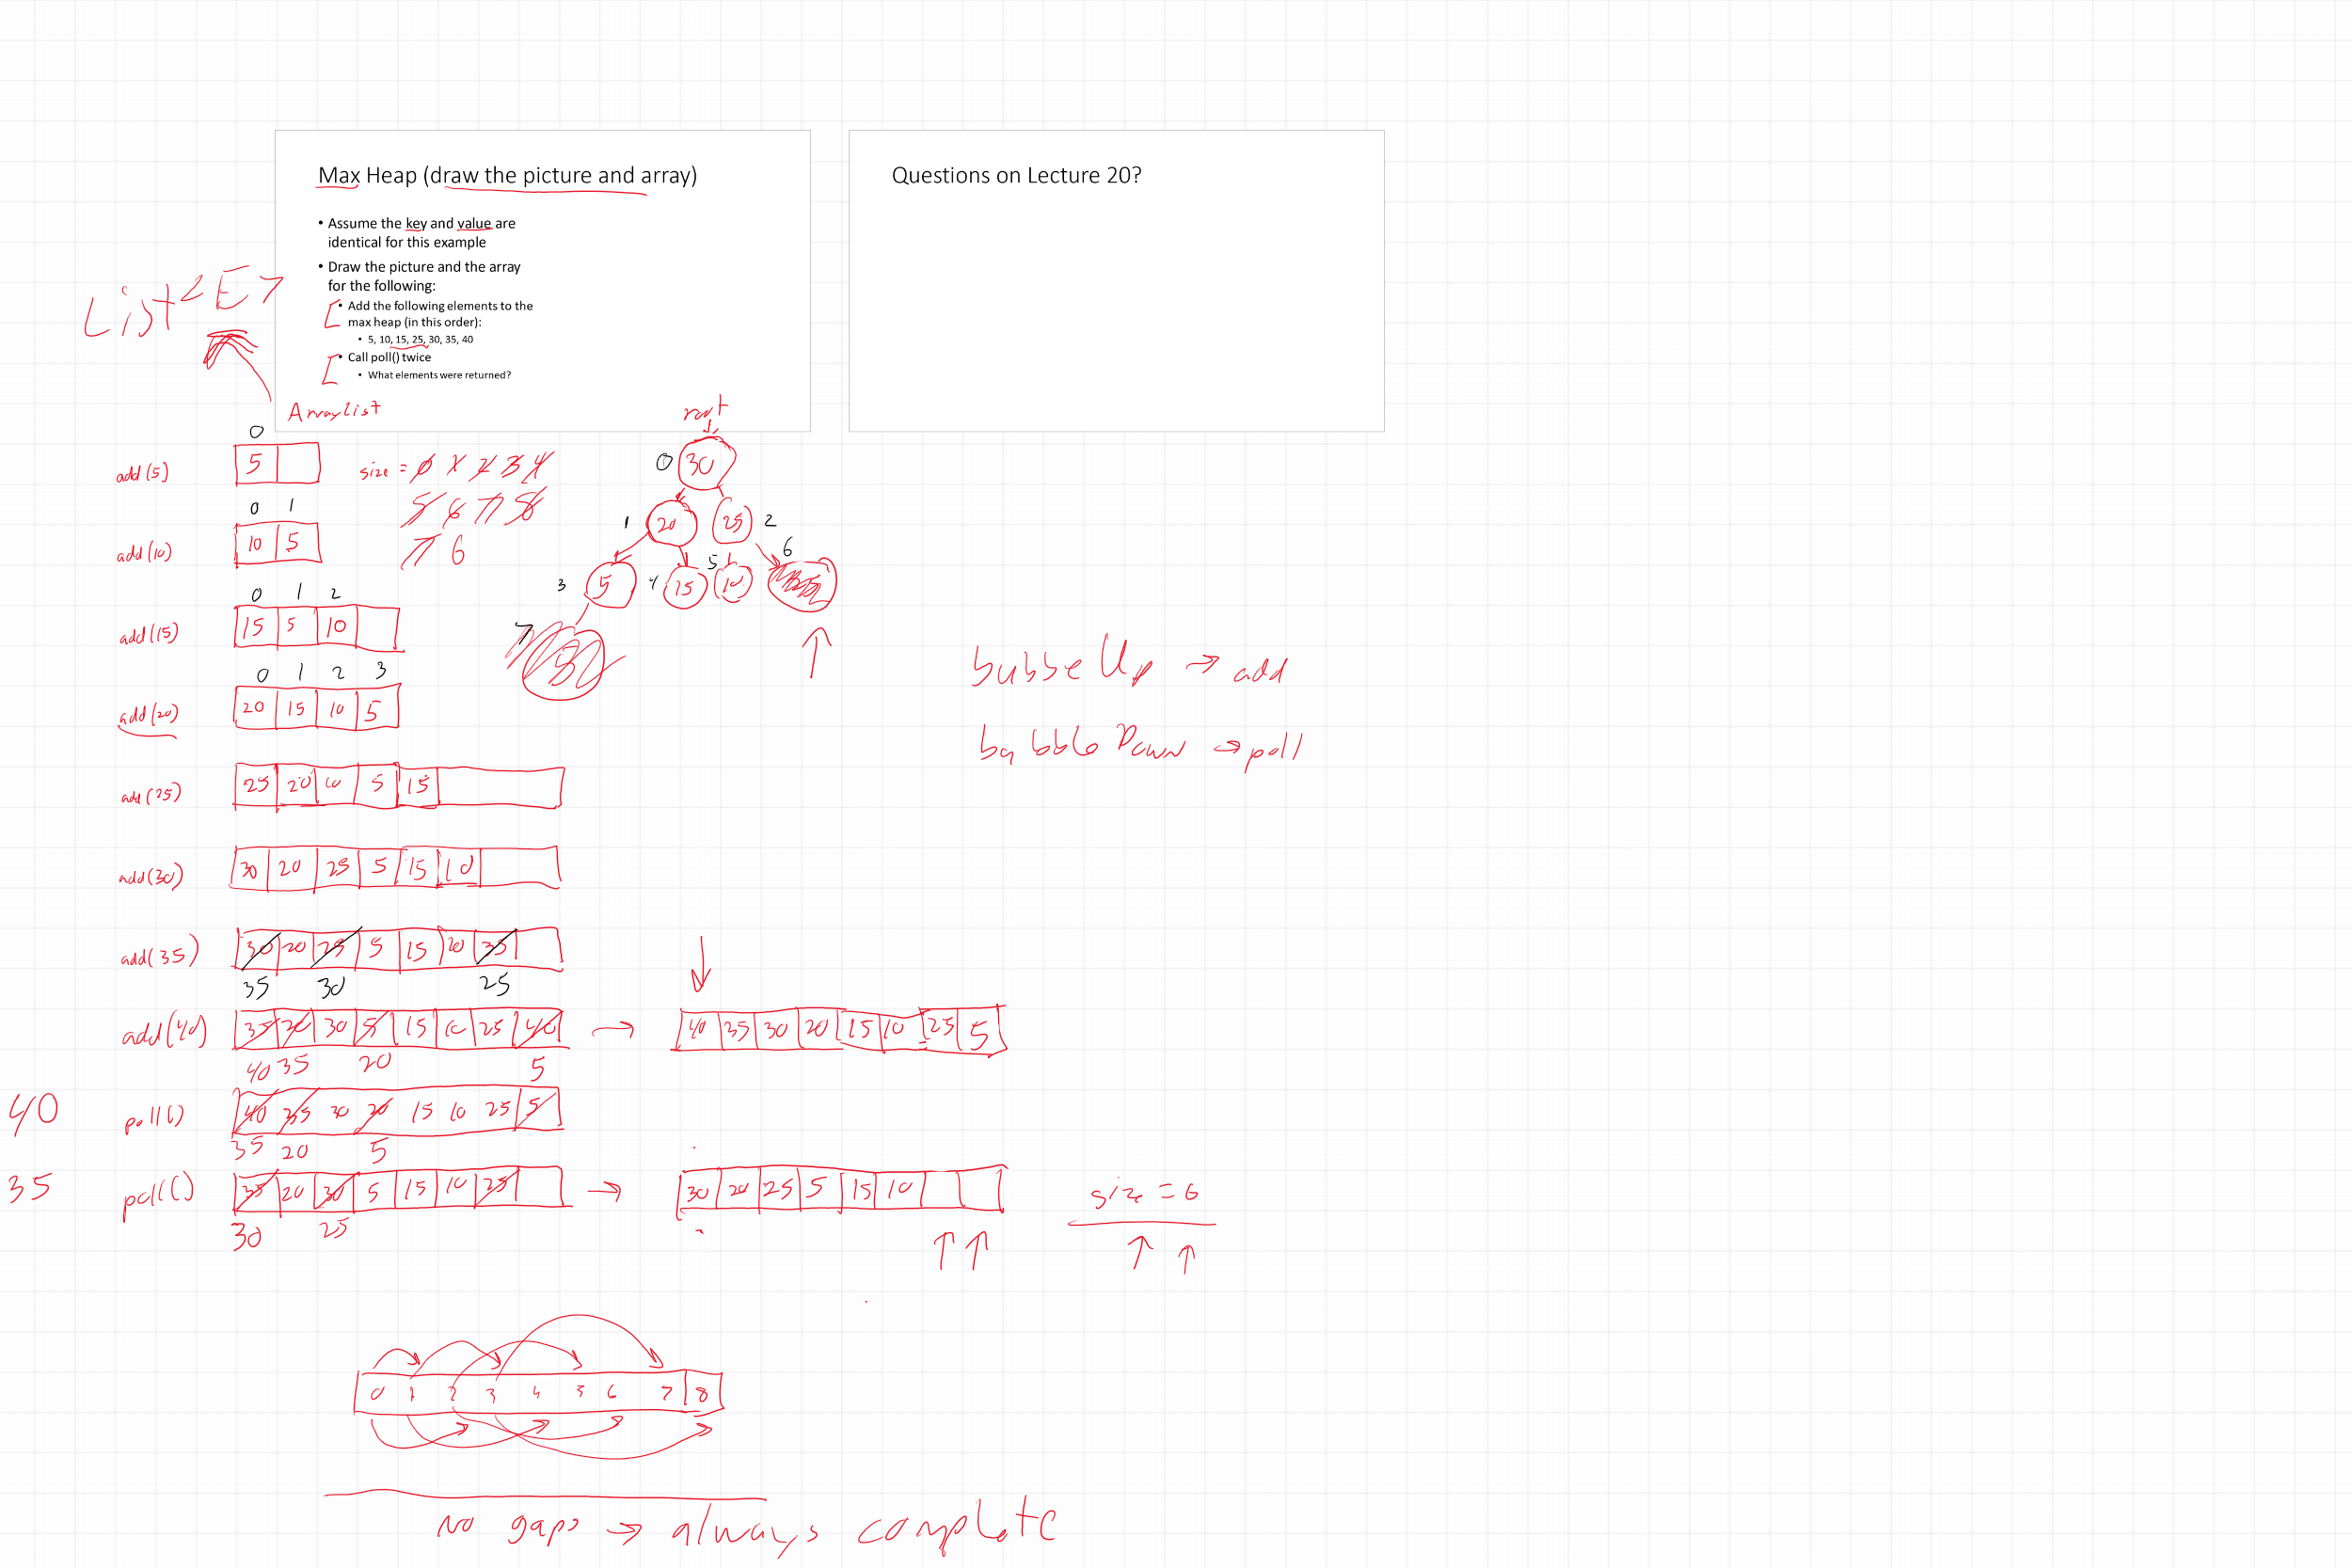 Max Heap (draw the picture and array)
• Assume the key and value are
identical for this example
• Draw the picture and the array
for the following:
• Add the following elements to the
max heap (in this order):
• 5, 10, 15, 25, 30, 35, 40
• Call poll() twice
• What elements were returned?
Questions on Lecture 20?
List<E>
ArrayList
root
0 30
1 20 25 2
3 5 4 15 5 10 6
7
0
add(5) 5
size = 0 1 2 3 4
5 6 7 8
7 6
0 1
add(10) 10 5
0 1 2
add(15) 15 5 10
0 1 2 3
add(20) 20 15 10 5
add(25) 25 20 10 5 15
add(30) 30 20 25 5 15 10
add(35) 30 20 25 5 15 10 35
35 30 25
add(40) 35 20 30 5 15 10 25 40 → 40 35 30 20 15 10 25 5
40 35 20 5
40 poll() 40 35 30 20 15 10 25 5
35 20 5
35 poll() 35 20 30 5 15 10 25 → 30 20 25 5 15 10
30 25
size = 6
bubbleUp → add
bubbleDown → poll
0 1 2 3 4 5 6 7 8
No gaps → always complete